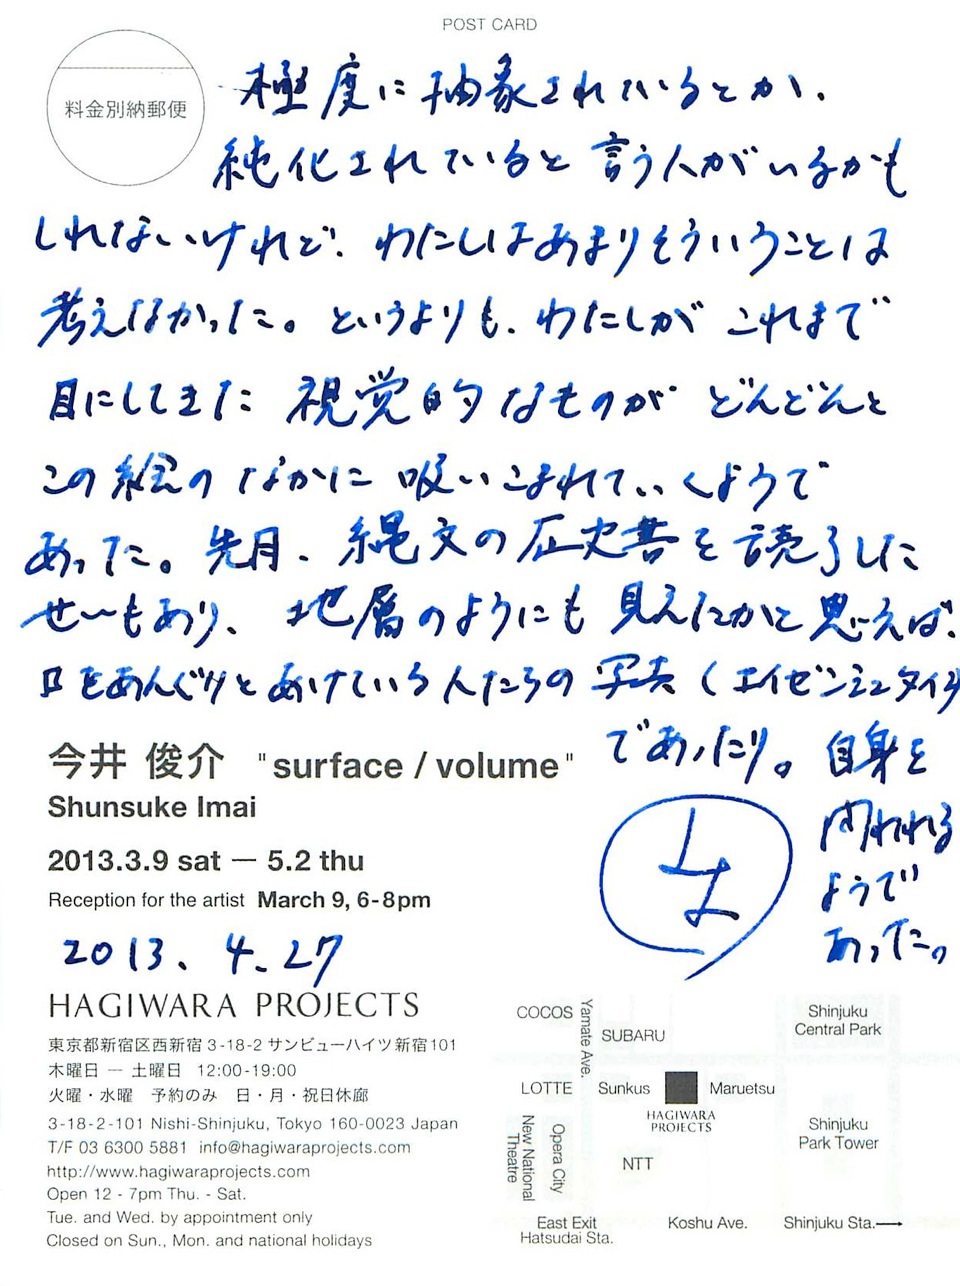 POST CARD
料金別納郵便
極度に抽象されているとか、
純化されていると言う人がいるかも
しれないけれど、わたしはあまりそういうことは
考えなかった。というよりも、わたしがこれまで
目にしてきた視覚的なものがどんどんと
この絵のなかに吸いこまれていくようで
あった。先月、縄文の歴史書を読了した
せいもあり、地層のようにも見えたかと思えば、
口をあんぐりとあけている人たちの写真(エイゼンシュタイン)
であったり。自身を
問われる
ようで
あった。
今井 俊介 "surface / volume"
Shunsuke Imai
2013.3.9 sat — 5.2 thu
Reception for the artist March 9, 6-8pm
2013. 4. 27
HAGIWARA PROJECTS
東京都新宿区西新宿 3-18-2 サンビューハイツ新宿 101
木曜日 — 土曜日 12:00-19:00
火曜・水曜 予約のみ 日・月・祝日休廊
3-18-2-101 Nishi-Shinjuku, Tokyo 160-0023 Japan
T/F 03 6300 5881 info@hagiwaraprojects.com
http://www.hagiwaraprojects.com
Open 12 - 7pm Thu. - Sat.
Tue. and Wed. by appointment only
Closed on Sun., Mon. and national holidays
COCOS
Yamate Ave.
SUBARU
Shinjuku
Central Park
LOTTE
Sunkus
Maruetsu
HAGIWARA
PROJECTS
New National
Theatre
Opera City
NTT
Shinjuku
Park Tower
East Exit
Hatsudai Sta.
Koshu Ave.
Shinjuku Sta.